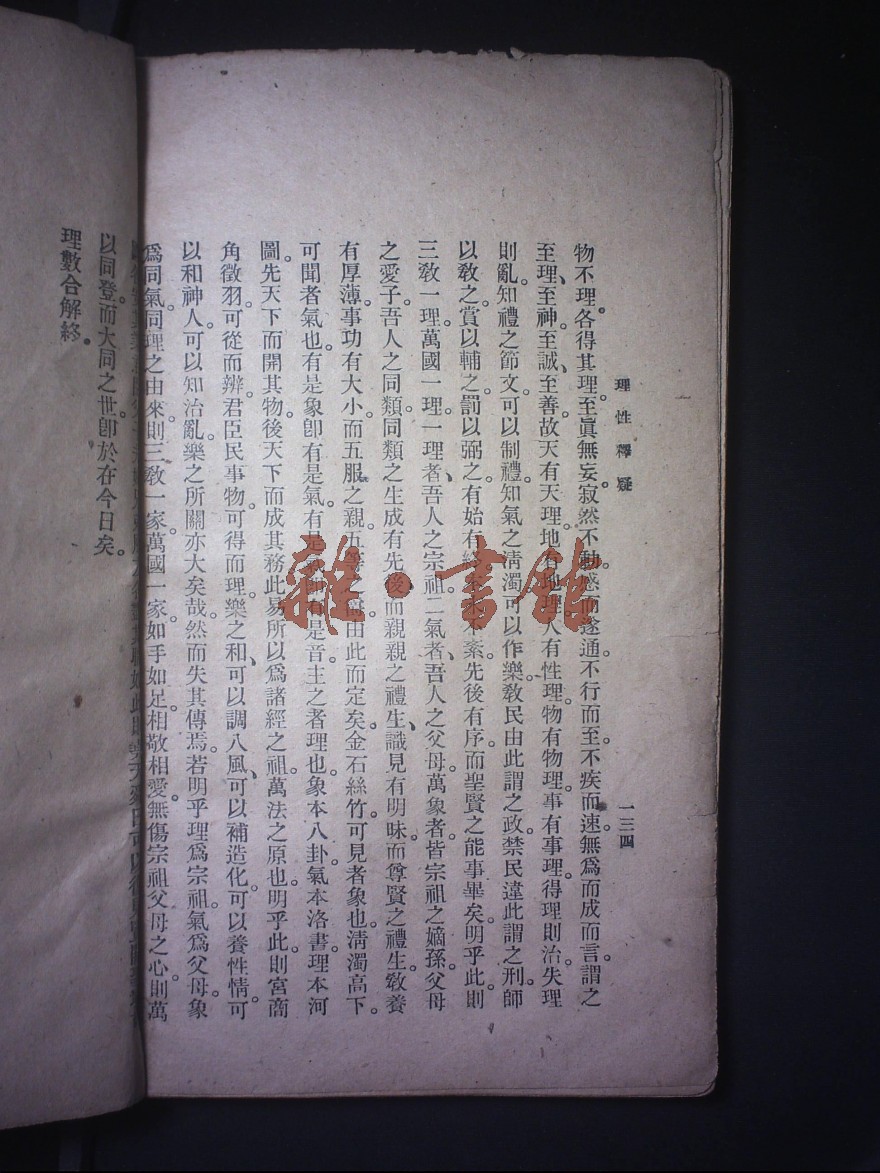 理性釋疑
一三四
物不理。各得其理。至眞無妄。寂然不動。感而遂通。不行而至。不疾而速。無爲而成。而言謂之
至理、至神、至誠、至善。故天有天理。地有地理。人有性理。物有物理。事有事理。得理則治。失理
則亂。知禮之節文。可以制禮。知氣之淸濁。可以作樂。敎民由此謂之政。禁民違此謂之刑。師
以敎之。賞以輔之。罰以弼之。有始有終。不紊。先後有序。而聖賢之能事畢矣。明乎此。則
三敎一理。萬國一理。一理者、吾人之宗祖。二氣者、吾人之父母。萬象者、皆宗祖之嫡孫。父母
之愛子。吾人之同類。同類之生成有先後。而親親之禮生、識見有明昧。而尊賢之禮生。敎養
有厚薄。事功有大小。而五服之親。五等之由此而定矣。金石絲竹。可見者象也。淸濁高下。
可聞者氣也。有是象卽有是氣。有是氣卽有是音。主之者理也。象本八卦。氣本洛書。理本河
圖。先天下而開其物。後天下而成其務。此易所以爲諸經之祖。萬法之原也。明乎此。則宮商
角徵羽。可從而辨。君臣民事物。可得而理。樂之和、可以調八風、可以補造化。可以養性情。可
以和神人。可以知治亂。樂之所關亦大矣哉。然而失其傳焉。若明乎理爲宗祖。氣爲父母。象
爲同氣。同理之由來。則三敎一家。萬國一家。如手如足。相敬相愛。無傷宗祖父母之心。則萬
以同登。而大同之世。卽於在今日矣。
理數合解終。
雜·書館